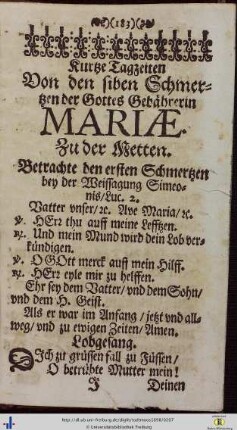 (183)
Kurtze Tagzeiten
Von den siben Schmer-
tzen der Gottes Gebährerin
MARIÆ.
Zu der Metten.
Betrachte den ersten Schmertzen
bey der Weissagung Simeo-
nis/Luc. 2.
Vatter vnser/ꝛc. Ave Maria/ꝛc.
℣. HErr thu auff meine Lefftzen.
℟. Und mein Mund wird dein Lob ver-
kündigen.
℣. O GOtt merck auff mein Hilff.
℟. HErr eyle mir zu helffen.
Ehr sey dem Vatter/vnd dem Sohn/
vnd dem H. Geist.
Als er war im Anfang/jetzt vnd all-
weg/vnd zu ewigen Zeiten/Amen.
Lobgesang.
DIch zu grüssen fall zu Füssen/
O betrübte Mutter mein!
J Deinen
© Universitätsbibliothek Freiburg